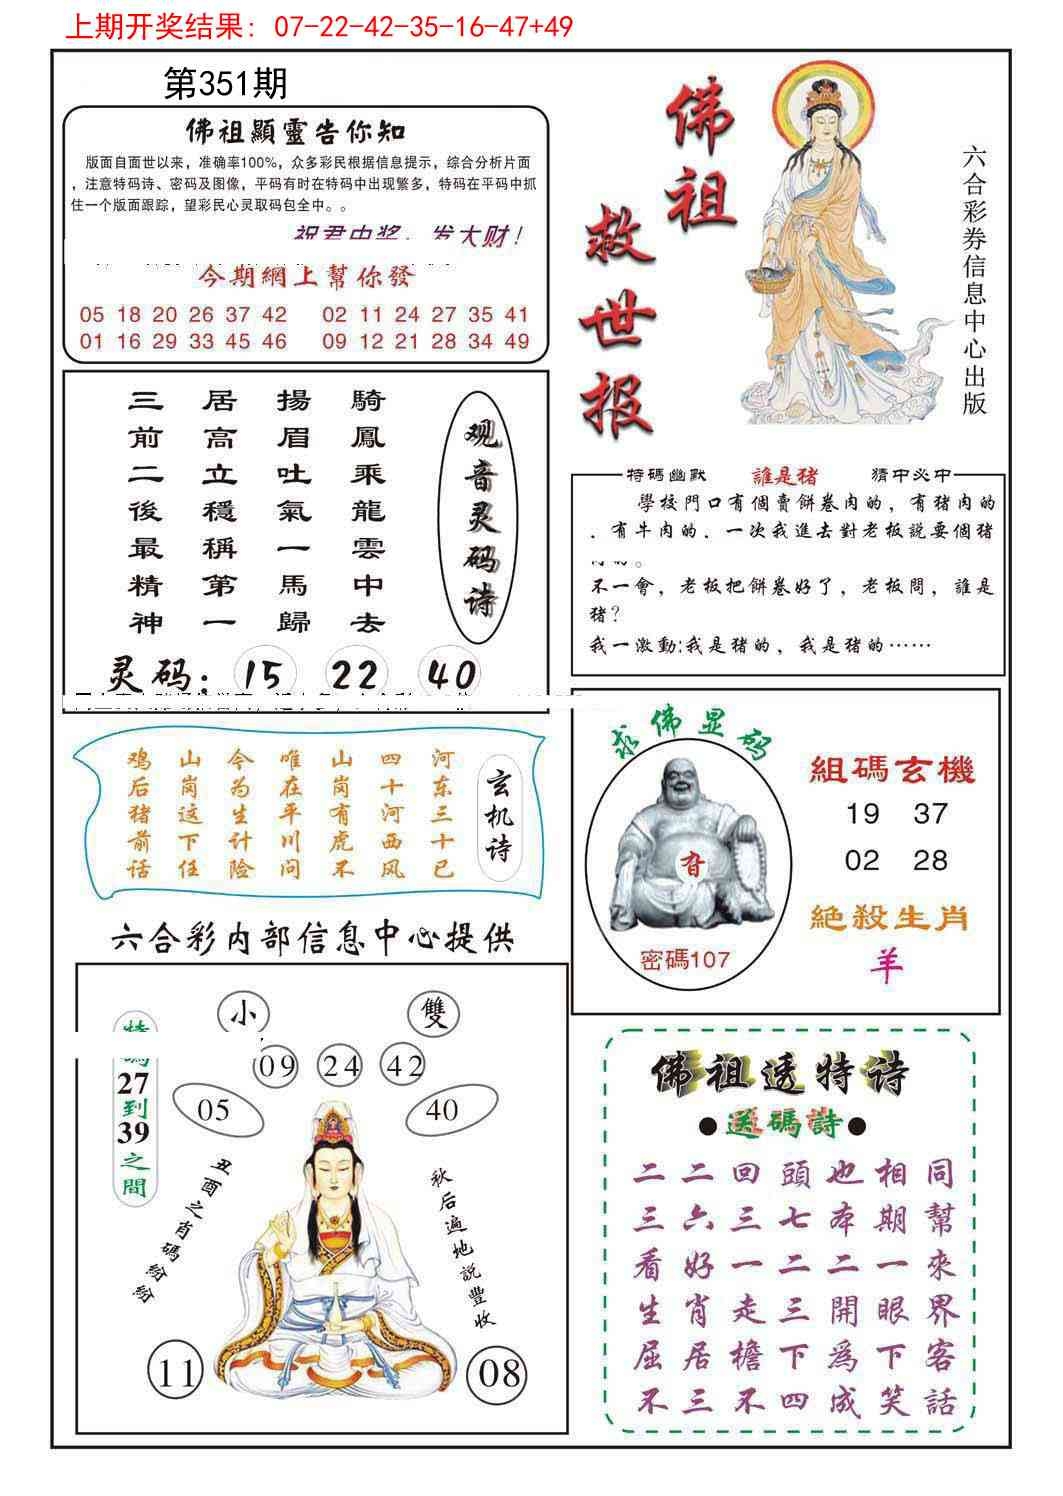 上期开奖结果：07-22-42-35-16-47+49
第351期
佛祖顯靈告你知
版面自面世以来，准确率100%，众多彩民根据信息提示，综合分析片面
，注意特码诗、密码及图像，平码有时在特码中出现繁多，特码在平码中抓
住一个版面跟踪，望彩民心灵取码包全中。。
祝君中奖，发大财！
今期網上幫你發
05 18 20 26 37 42 02 11 24 27 35 41
01 16 29 33 45 46 09 12 21 28 34 49
佛祖
救世报
六合彩券信息中心出版
观音灵码诗
騎鳳乘龍雲中去
揚眉吐氣一馬歸
居高立穩稱第一
三前二後最精神
灵码：15 22 40
特碼幽默 誰是猪 猜中必中
學校門口有個賣餅卷肉的，有猪肉的
．有牛肉的．一次我進去對老板説要個猪
不一會，老板把餅卷好了，老板問，誰是
猪？
我一激動:我是猪的，我是猪的……
玄机诗
河东三十已
四十河西风
山岗有虎不
唯在平川问
今为生计险
山岗这下任
鸡后猪前话
求佛显码
密碼107
組碼玄機
19 37
02 28
絶殺生肖
羊
六合彩内部信息中心提供
小 雙
09 24 42
05 40
特碼27到39之間
丑酉之肖碼紛紛
秋后遍地説豐收
11 08
佛祖透特诗
●送碼詩●
同幫來界客話
相期一眼下笑
也本二開為成
頭七二三下四
回三一走檐不
二六好肖居三
二三看生屈不